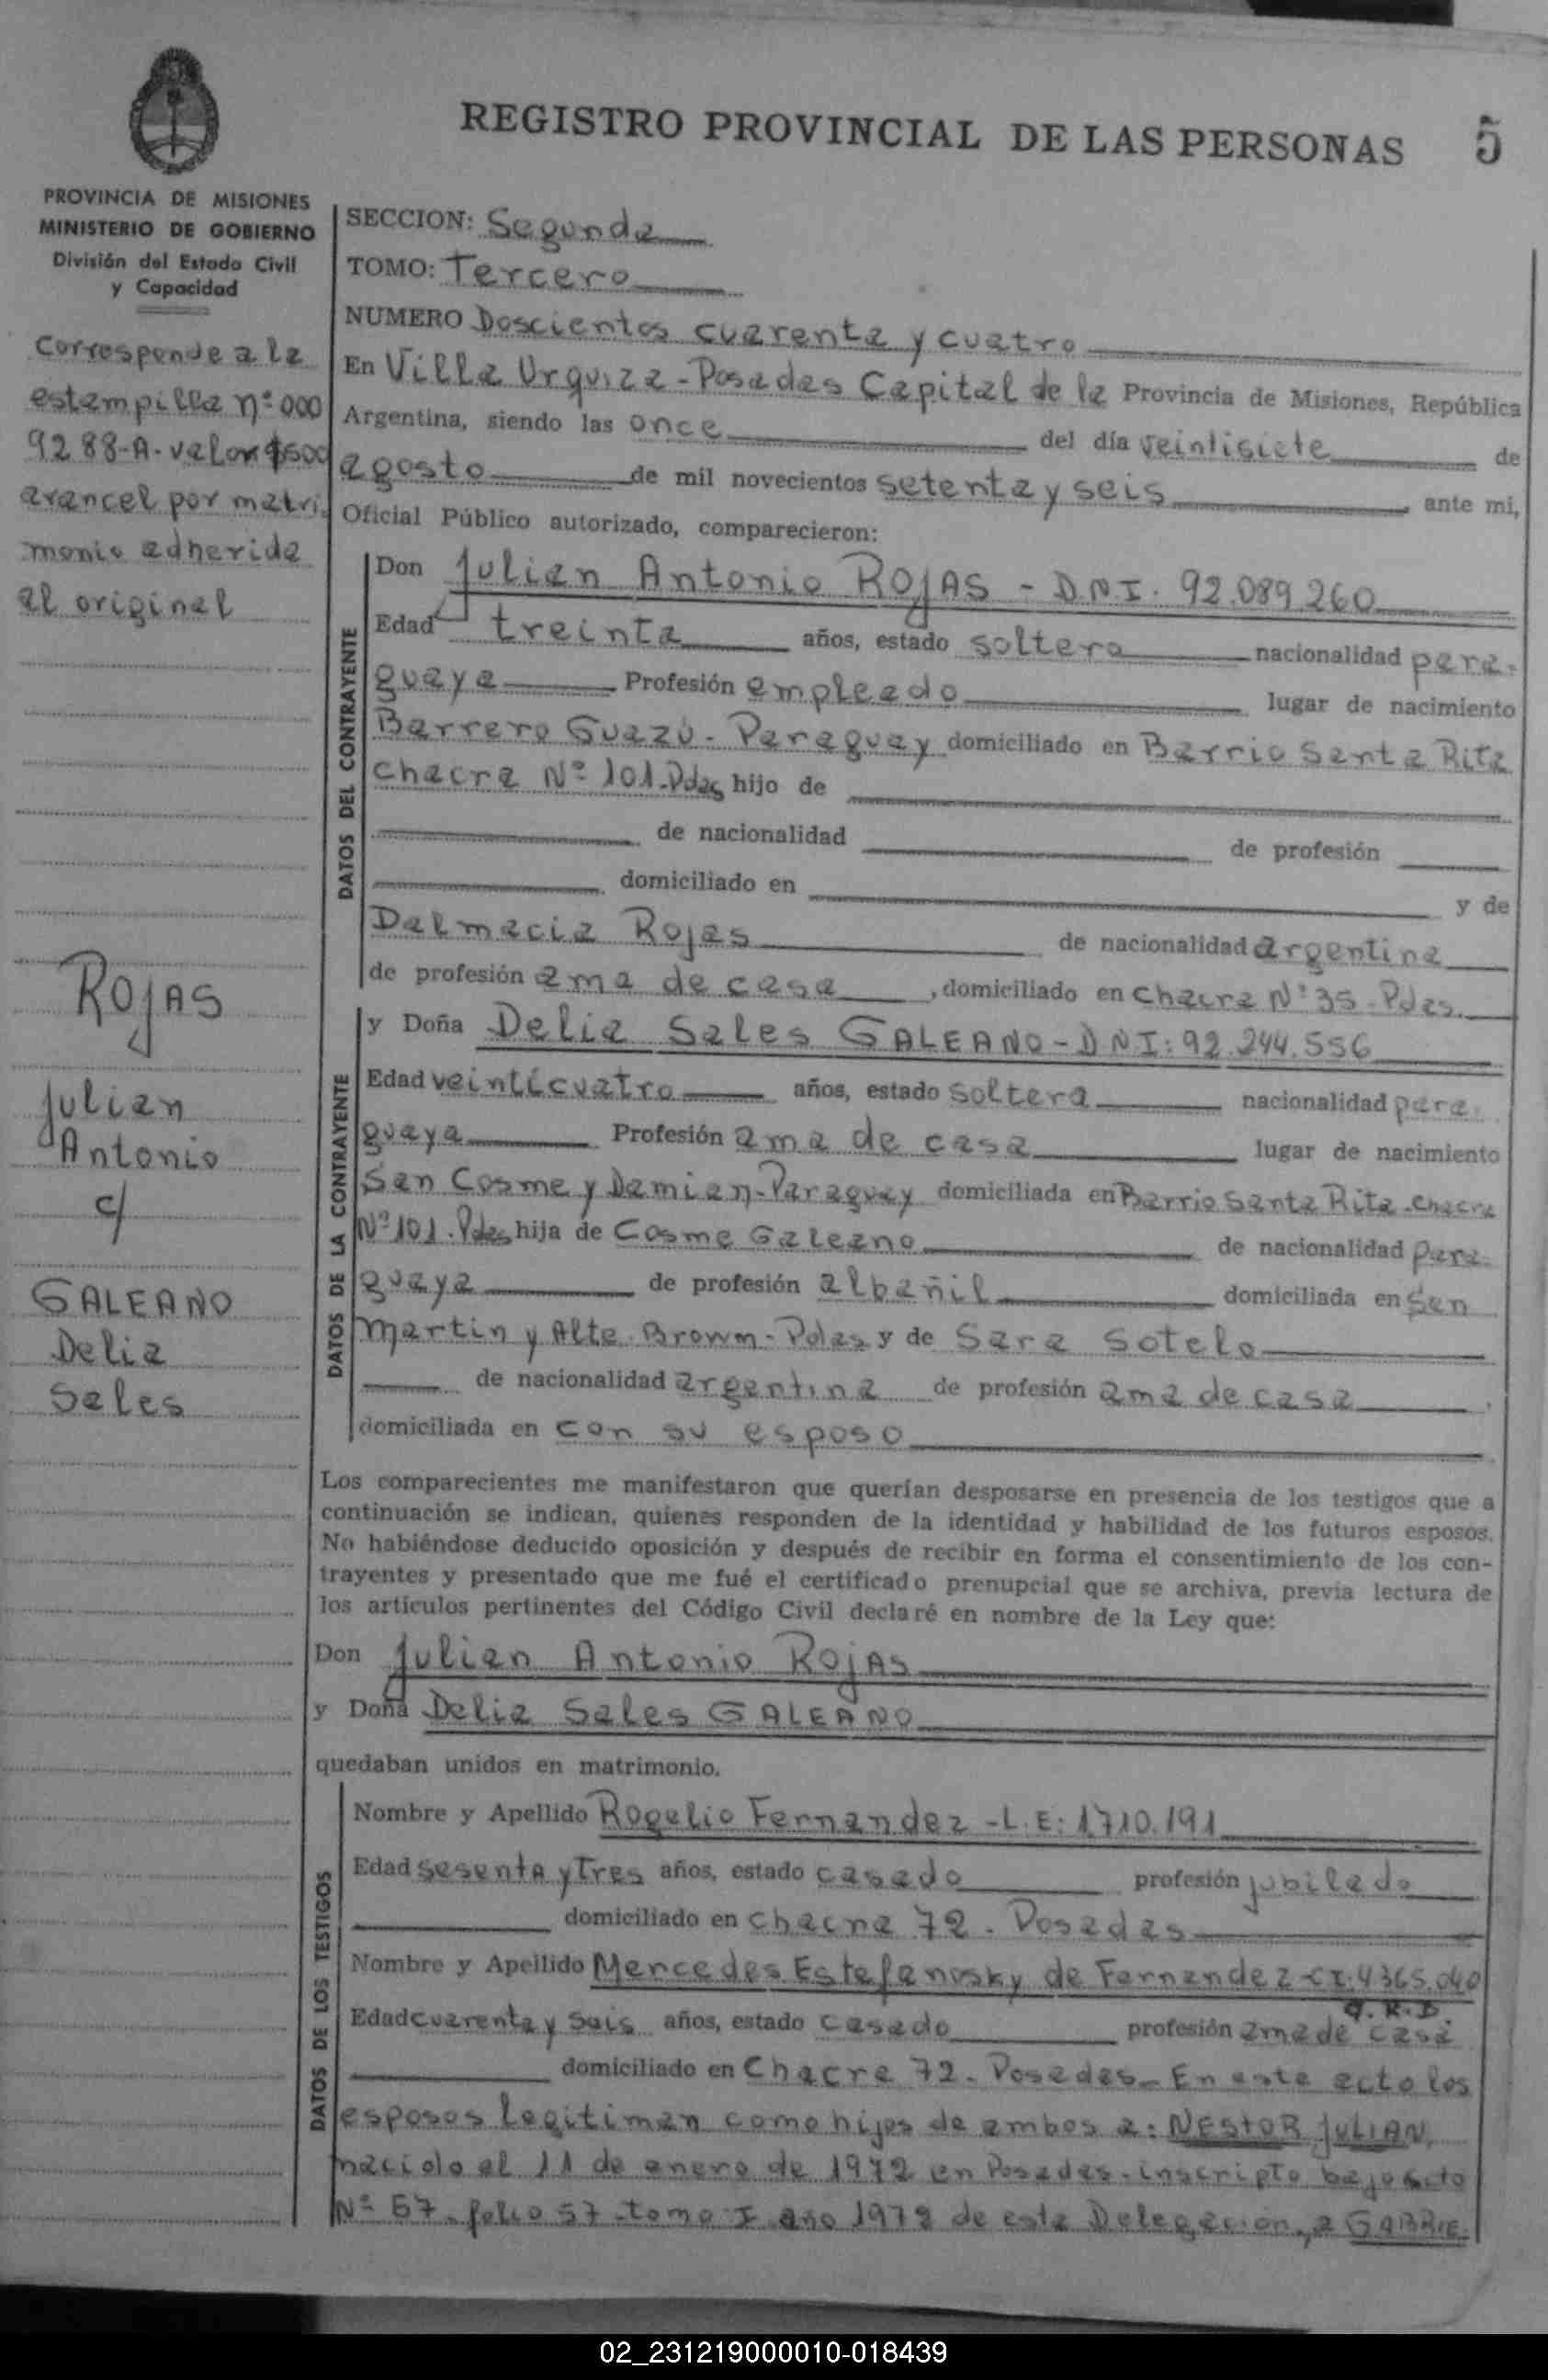 REGISTRO PROVINCIAL DE LAS PERSONAS 5
PROVINCIA DE MISIONES
MINISTERIO DE GOBIERNO
División del Estado Civil
y Capacidad
Corresponde a la
estampilla nº 000
9288-A- valor $500
arancel por matri-
monio adherida
al original
ROJAS
Julian
Antonio
c/
GALEANO
Delia
Sales
SECCION: Segunda
TOMO: Tercero
NUMERO Doscientos cuarenta y cuatro
En Villa Urquiza - Posadas Capital de la Provincia de Misiones, República
Argentina, siendo las once del día veintisiete de
agosto de mil novecientos setenta y seis ante mi,
Oficial Público autorizado, comparecieron:
DATOS DEL CONTRAYENTE
Don Julian Antonio ROJAS - D.N.I. 92.089.260
Edad treinta años, estado soltero nacionalidad para-
guaya Profesión empleado lugar de nacimiento
Barrero Guazú - Paraguay domiciliado en Barrio Santa Rita
chacra Nº 101-Pdas hijo de
de nacionalidad de profesión
domiciliado en y de
Dalmacia Rojas de nacionalidad argentina
de profesión ama de casa, domiciliado en chacra Nº 35- Pdas.
DATOS DE LA CONTRAYENTE
y Doña Delia Sales GALEANO - D.N.I: 92.244.556
Edad veinticuatro años, estado soltera nacionalidad para-
guaya Profesión ama de casa lugar de nacimiento
San Cosme y Damian - Paraguay domiciliada en Barrio Santa Rita - chacra
Nº 101. Pdas hija de Cosme Galeano de nacionalidad para-
guaya de profesión albañil domiciliada en San
Martin y Alte. Brown - Pdas y de Sara Sotelo
de nacionalidad argentina de profesión ama de casa,
domiciliada en con su esposo
Los comparecientes me manifestaron que querían desposarse en presencia de los testigos que a
continuación se indican, quienes responden de la identidad y habilidad de los futuros esposos.
No habiéndose deducido oposición y después de recibir en forma el consentimiento de los con-
trayentes y presentado que me fué el certificado prenupcial que se archiva, previa lectura de
los artículos pertinentes del Código Civil declaré en nombre de la Ley que:
Don Julian Antonio ROJAS
y Doña Delia Sales GALEANO
quedaban unidos en matrimonio.
DATOS DE LOS TESTIGOS
Nombre y Apellido Rogelio Fernandez - L.E: 1.710.191
Edad sesenta y tres años, estado casado profesión jubilado
domiciliado en chacra 72 - Posadas
Nombre y Apellido Mercedes Estefanosky de Fernandez - CI. 4365.040
Edad cuarenta y seis años, estado casado profesión ama de casa
domiciliado en Chacra 72 - Posadas - En este acto los
esposos legitiman como hijos de ambos a: NESTOR JULIAN,
nacido el 11 de enero de 1972 en Posadas - inscripto bajo acto
Nº 57 - folio 57 - tomo I año 1972 de esta Delegación, a GABRIE-
02_231219000010-018439